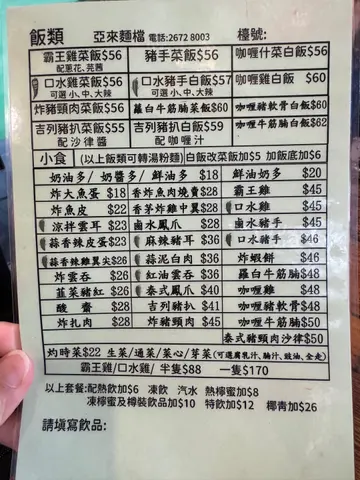 飯類 亞來麵檔 電話:2672 8003 檯號:
霸王雞菜飯$56 豬手菜飯$56 咖喱什菜白飯$56
配蔥花、芫茜
口水雞菜飯$56 口水豬手白飯$57 咖喱雞白飯 $60
可選小、中、大辣 可選小、中、大辣
炸豬頸肉菜飯$56 羅白牛筋腩菜飯$60 咖喱豬軟骨白飯$60
吉列豬扒菜飯$55 吉列豬扒白飯$59 咖喱牛筋腩白飯$62
配沙律醬 配咖喱汁
小食 (以上飯類可轉湯粉麵) 白飯改菜飯加$5 加飯底加$6
奶油多/奶醬多/鮮油多 $18 鮮油奶多 $20
炸大魚蛋 $18 香炸魚肉燒賣$28 霸王雞 $45
炸魚皮 $22 香茅炸雞中翼$28 口水雞 $45
涼拌雲耳 $23 鹵水鳳爪 $28 鹵水豬手 $45
蒜香辣皮蛋$23 麻辣豬耳 $36 口水豬手 $46
蒜香辣雞翼尖$26 蒜泥白肉 $36 炸蝦餅 $46
炸雲吞 $26 紅油雲吞 $36 羅白牛筋腩$48
韮菜豬紅 $26 泰式鳳爪 $40 咖喱雞 $48
酸齋 $28 吉列豬扒 $41 咖喱豬軟骨$48
炸扎肉 $28 炸豬頸肉 $45 咖喱牛筋腩$50
泰式豬頸肉沙律$50
灼時菜$22 生菜/通菜/菜心/芽菜(可選腐乳汁、腩汁、豉油、全走)
霸王雞/口水雞/半隻$88 一隻$170
以上套餐:配熱飲加$6 凍飲 汽水 熱檸蜜加$8
凍檸蜜及樽裝飲品加$10 特飲加$12 椰青加$26
請填寫飲品: